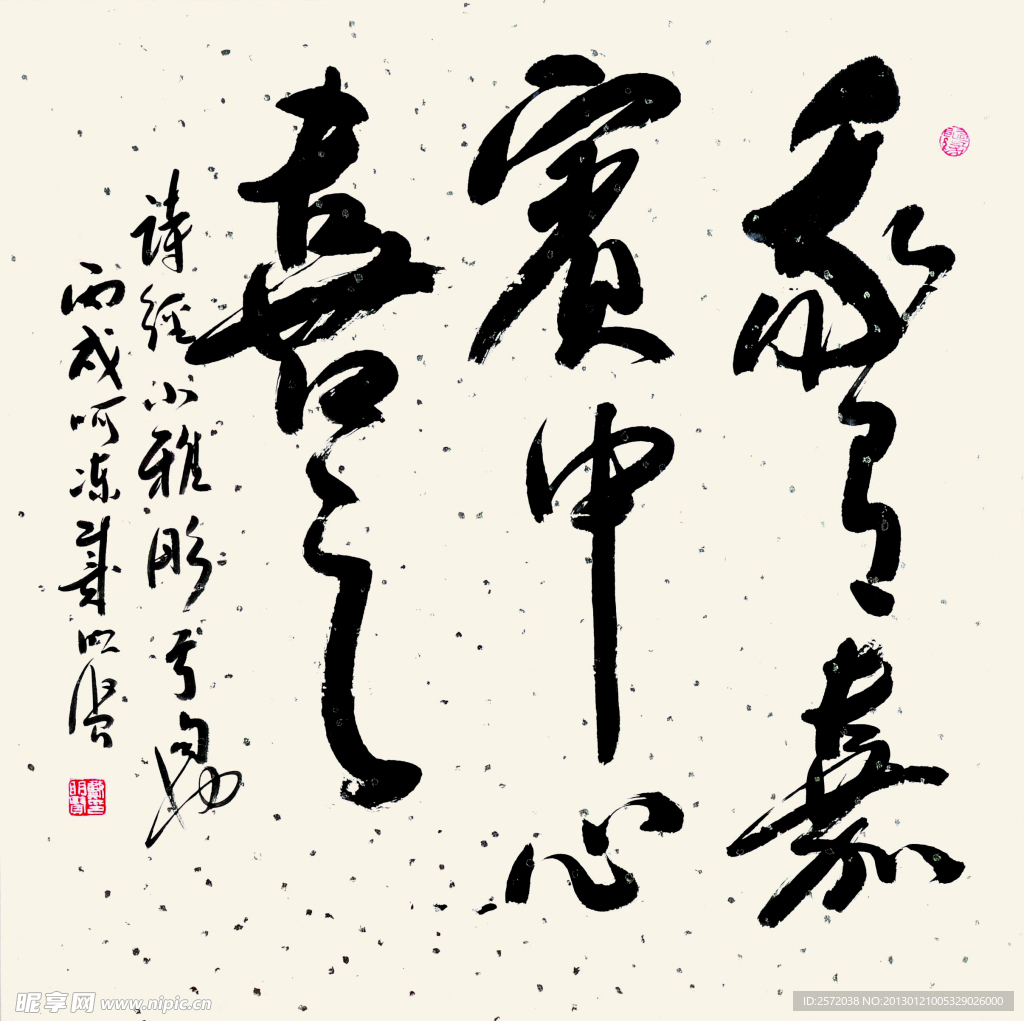 我有嘉
賓中心
喜之
詩經小雅彤弓句
丙戌呵凍戴明賢
昵享网 www.nipic.cn
ID:2572038 NO:20130121005329026000